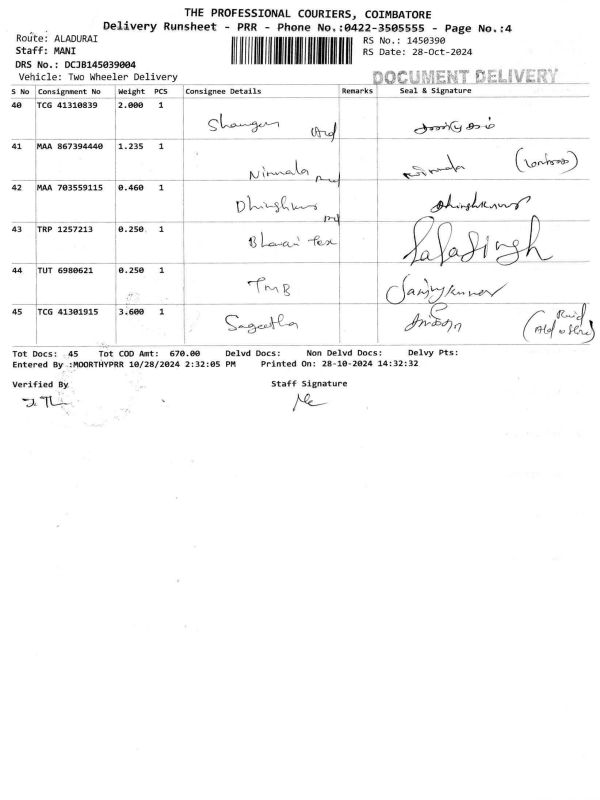 THE PROFESSIONAL COURIERS, COIMBATORE
Delivery Runsheet - PRR - Phone No.:0422-3505555 - Page No.:4
Route: ALADURAI
RS No.: 1450390
Staff: MANI
RS Date: 28-Oct-2024
DRS No.: DCJB145039004
Vehicle: Two Wheeler Delivery
DOCUMENT DELIVERY
S No Consignment No Weight PCS Consignee Details Remarks Seal & Signature
40 TCG 41310839 2.000 1
41 MAA 867394440 1.235 1 Nirmala Nirmala
42 MAA 703559115 0.460 1
43 TRP 1257213 0.250 1 Bhavani Tex LalaSingh
44 TUT 6980621 0.250 1 TMB Sanjaykumar
45 TCG 41301915 3.600 1 Sageetha
Tot Docs: 45 Tot COD Amt: 670.00 Delvd Docs: Non Delvd Docs: Delvy Pts:
Entered By :MOORTHYPRR 10/28/2024 2:32:05 PM Printed On: 28-10-2024 14:32:32
Verified By Staff Signature